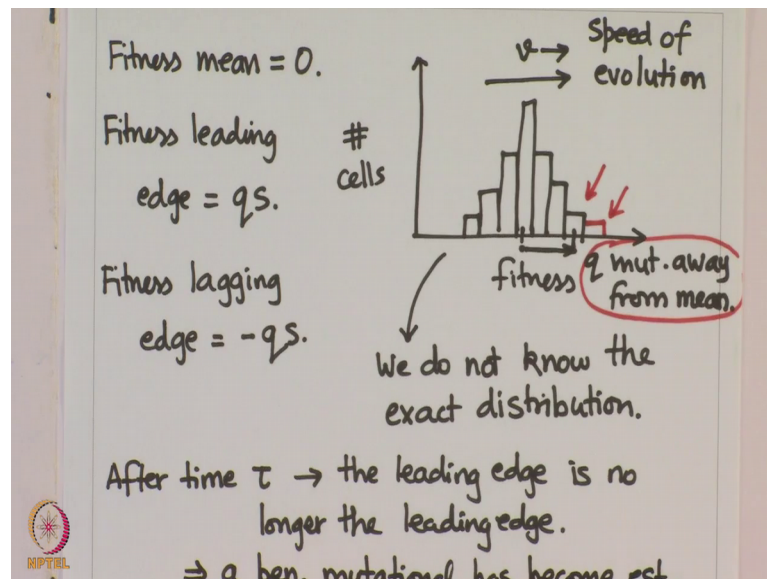 Fitness mean = 0.
Fitness leading
edge = qs.
Fitness lagging
edge = -qs.
#
cells
v → Speed of
evolution
fitness
q mut. away
from mean.
We do not know the
exact distribution.
After time τ → the leading edge is no
longer the leading edge.
⇒ a ben. mutational has become est
NPTEL